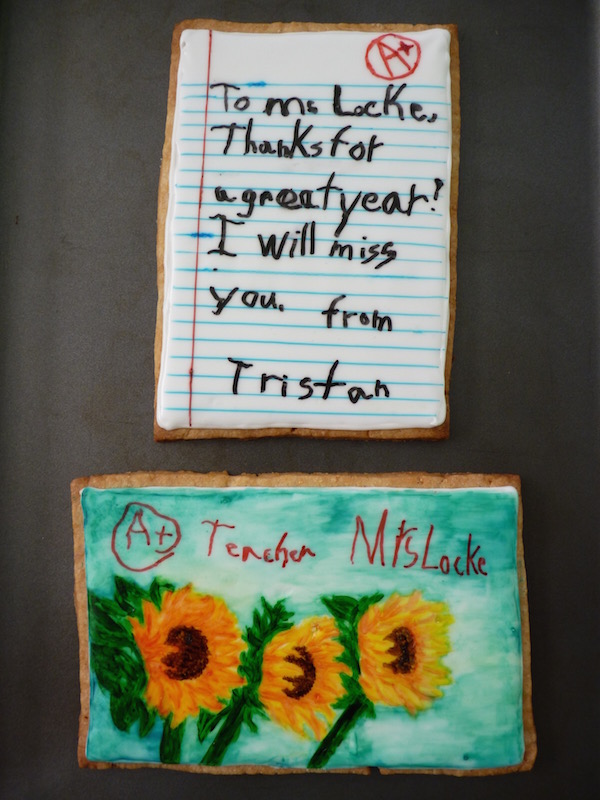 A+
To Ms Locke,
Thanks for
a great year!
I will miss
you. from
Tristan
A+ Teacher Mrs Locke